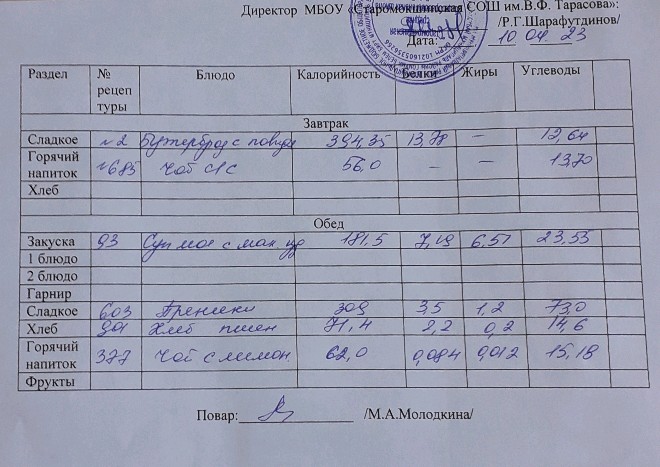 Директор МБОУ «Старомокшинская СОШ им.В.Ф. Тарасова»:
/Р.Г.Шарафутдинов/
Дата: 10 04 23
Раздел № рецептуры Блюдо Калорийность Белки Жиры Углеводы
Завтрак
Сладкое №2 Бутерброд с повид 394,35 13,78 — 12,64
Горячий напиток №685 Чай с/с 56,0 — — 13,70
Хлеб
Обед
Закуска 93 Суп мол с мак из 181,5 7,19 6,57 23,55
1 блюдо
2 блюдо
Гарнир
Сладкое 603 Пряники 309 3,5 1,2 73,0
Хлеб 901 Хлеб пшен 71,4 2,2 0,2 14,6
Горячий напиток 377 Чай с лимон 62,0 0,084 0,012 15,18
Фрукты
Повар: /М.А.Молодкина/